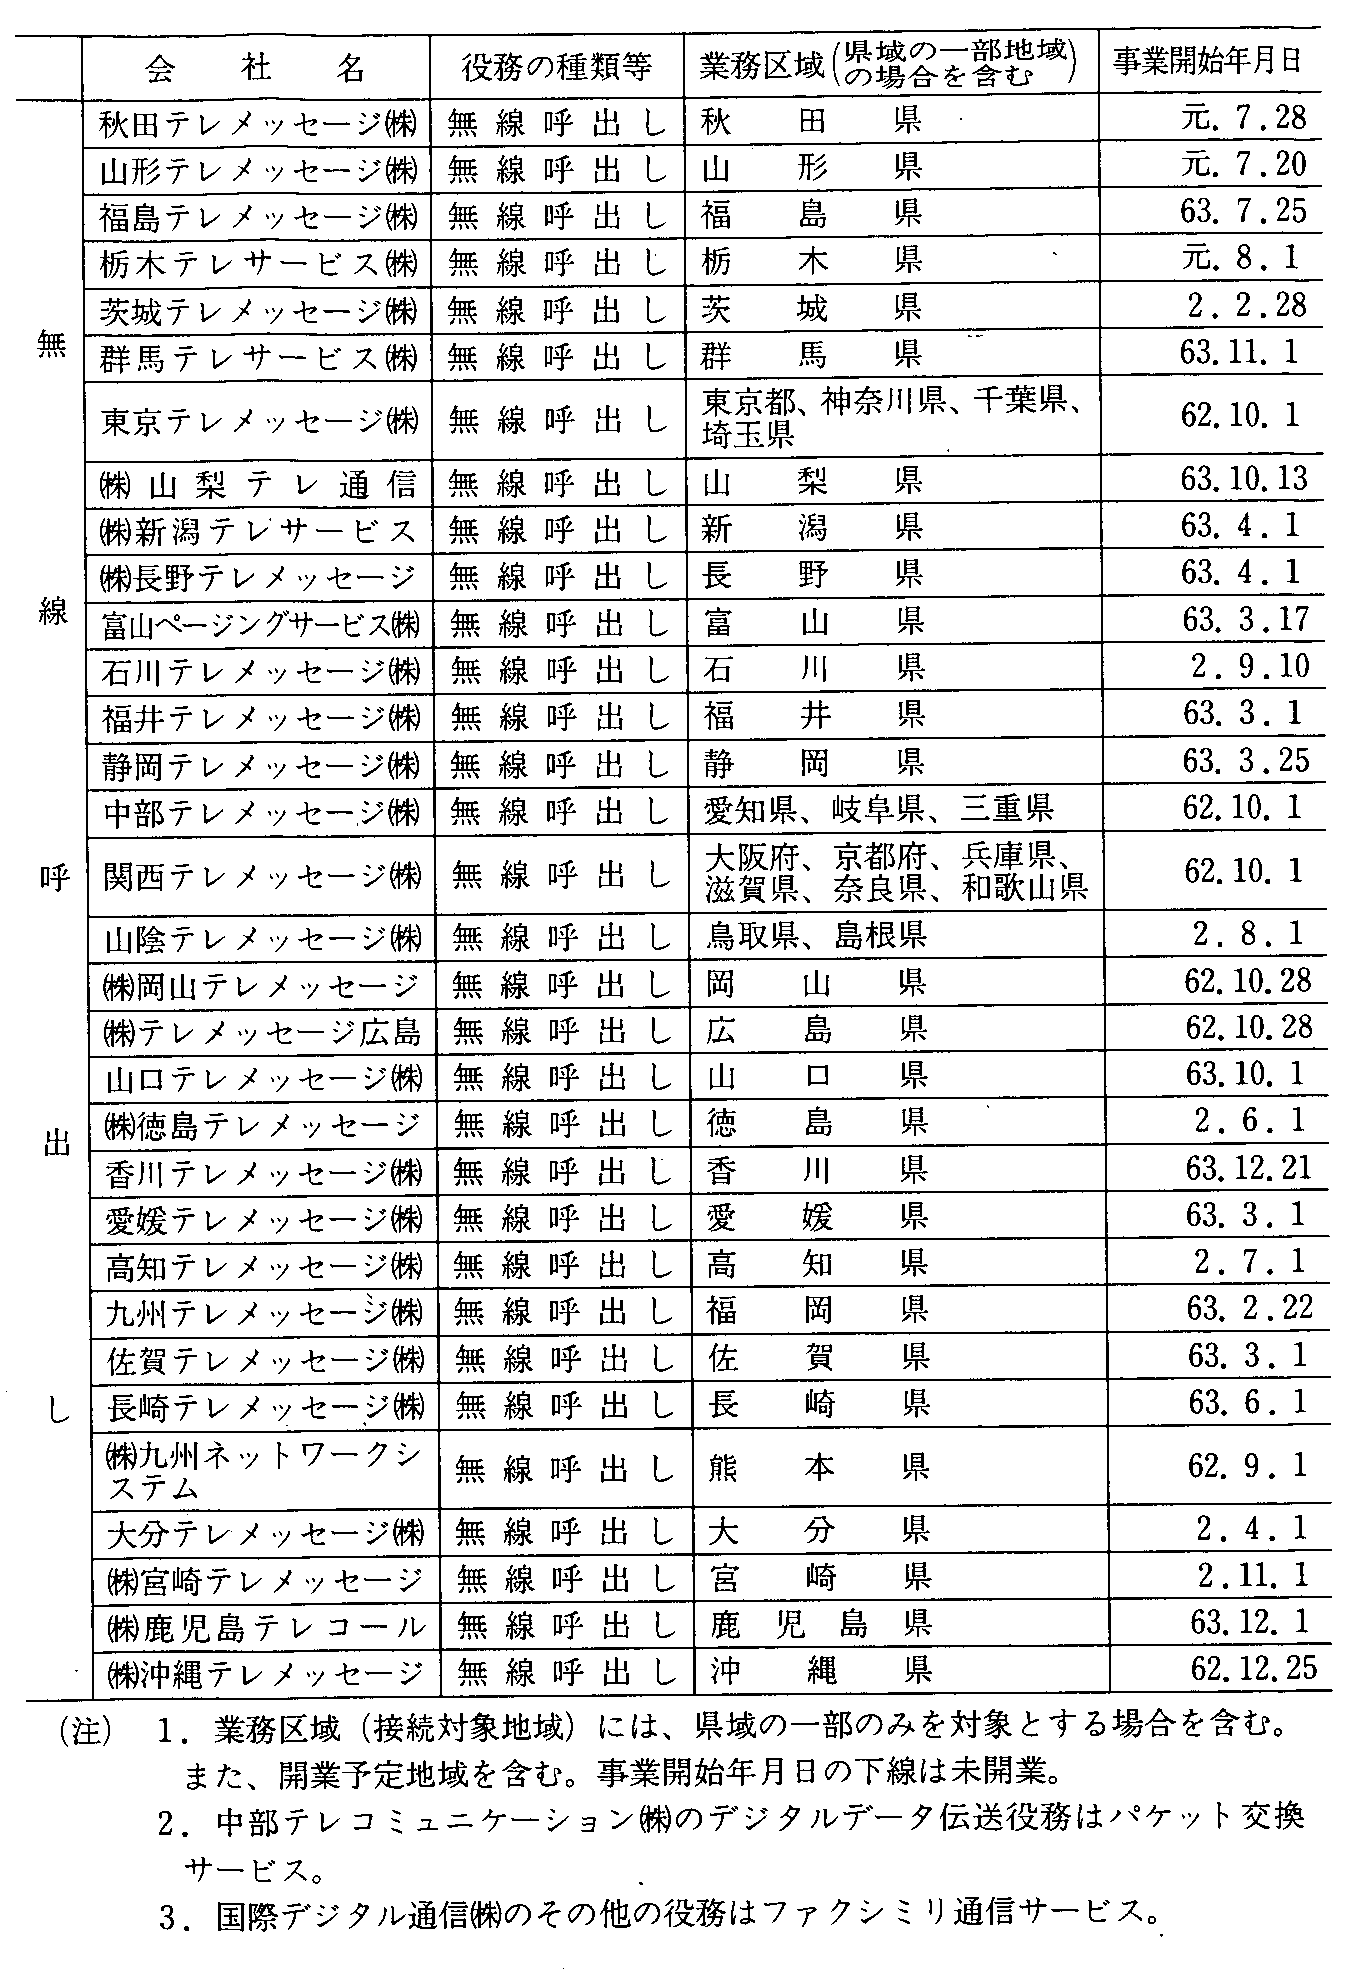 会社名 役務の種類等 業務区域(県域の一部地域の場合を含む) 事業開始年月日
無線呼出し
秋田テレメッセージ㈱ 無線呼出し 秋田県 元.7.28
山形テレメッセージ㈱ 無線呼出し 山形県 元.7.20
福島テレメッセージ㈱ 無線呼出し 福島県 63.7.25
栃木テレサービス㈱ 無線呼出し 栃木県 元.8.1
茨城テレメッセージ㈱ 無線呼出し 茨城県 2.2.28
群馬テレサービス㈱ 無線呼出し 群馬県 63.11.1
東京テレメッセージ㈱ 無線呼出し 東京都、神奈川県、千葉県、
埼玉県 62.10.1
㈱山梨テレ通信 無線呼出し 山梨県 63.10.13
㈱新潟テレサービス 無線呼出し 新潟県 63.4.1
㈱長野テレメッセージ 無線呼出し 長野県 63.4.1
富山ページングサービス㈱ 無線呼出し 富山県 63.3.17
石川テレメッセージ㈱ 無線呼出し 石川県 2.9.10
福井テレメッセージ㈱ 無線呼出し 福井県 63.3.1
静岡テレメッセージ㈱ 無線呼出し 静岡県 63.3.25
中部テレメッセージ㈱ 無線呼出し 愛知県、岐阜県、三重県 62.10.1
関西テレメッセージ㈱ 無線呼出し 大阪府、京都府、兵庫県、
滋賀県、奈良県、和歌山県 62.10.1
山陰テレメッセージ㈱ 無線呼出し 鳥取県、島根県 2.8.1
㈱岡山テレメッセージ 無線呼出し 岡山県 62.10.28
㈱テレメッセージ広島 無線呼出し 広島県 62.10.28
山口テレメッセージ㈱ 無線呼出し 山口県 63.10.1
㈱徳島テレメッセージ 無線呼出し 徳島県 2.6.1
香川テレメッセージ㈱ 無線呼出し 香川県 63.12.21
愛媛テレメッセージ㈱ 無線呼出し 愛媛県 63.3.1
高知テレメッセージ㈱ 無線呼出し 高知県 2.7.1
九州テレメッセージ㈱ 無線呼出し 福岡県 63.2.22
佐賀テレメッセージ㈱ 無線呼出し 佐賀県 63.3.1
長崎テレメッセージ㈱ 無線呼出し 長崎県 63.6.1
㈱九州ネットワークシ
ステム 無線呼出し 熊本県 62.9.1
大分テレメッセージ㈱ 無線呼出し 大分県 2.4.1
㈱宮崎テレメッセージ 無線呼出し 宮崎県 2.11.1
㈱鹿児島テレコール 無線呼出し 鹿児島県 63.12.1
㈱沖縄テレメッセージ 無線呼出し 沖縄県 62.12.25
(注) 1.業務区域(接続対象地域)には、県域の一部のみを対象とする場合を含む。
また、開業予定地域を含む。事業開始年月日の下線は未開業。
2.中部テレコミュニケーション㈱のデジタルデータ伝送役務はパケット交換
サービス。
3.国際デジタル通信㈱のその他の役務はファクシミリ通信サービス。